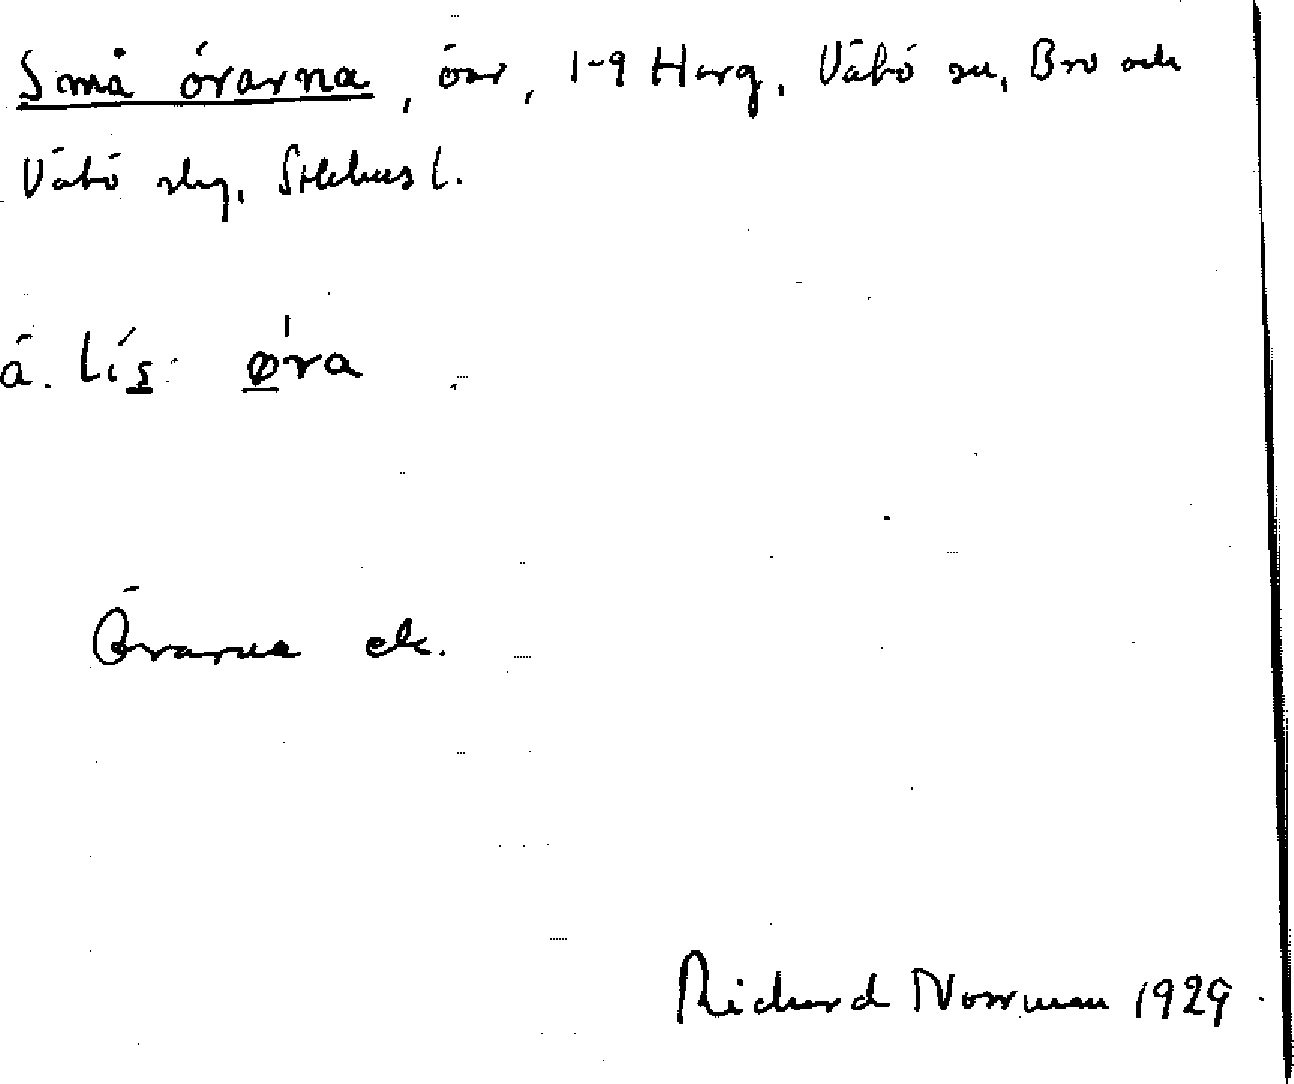 Små örarna, öar, 1-9 Harg, Vätö sn, Bro och
Vätö skg, Sthlms l.
ä. lis: øra
Örarna ek.
Richard Norrman 1929